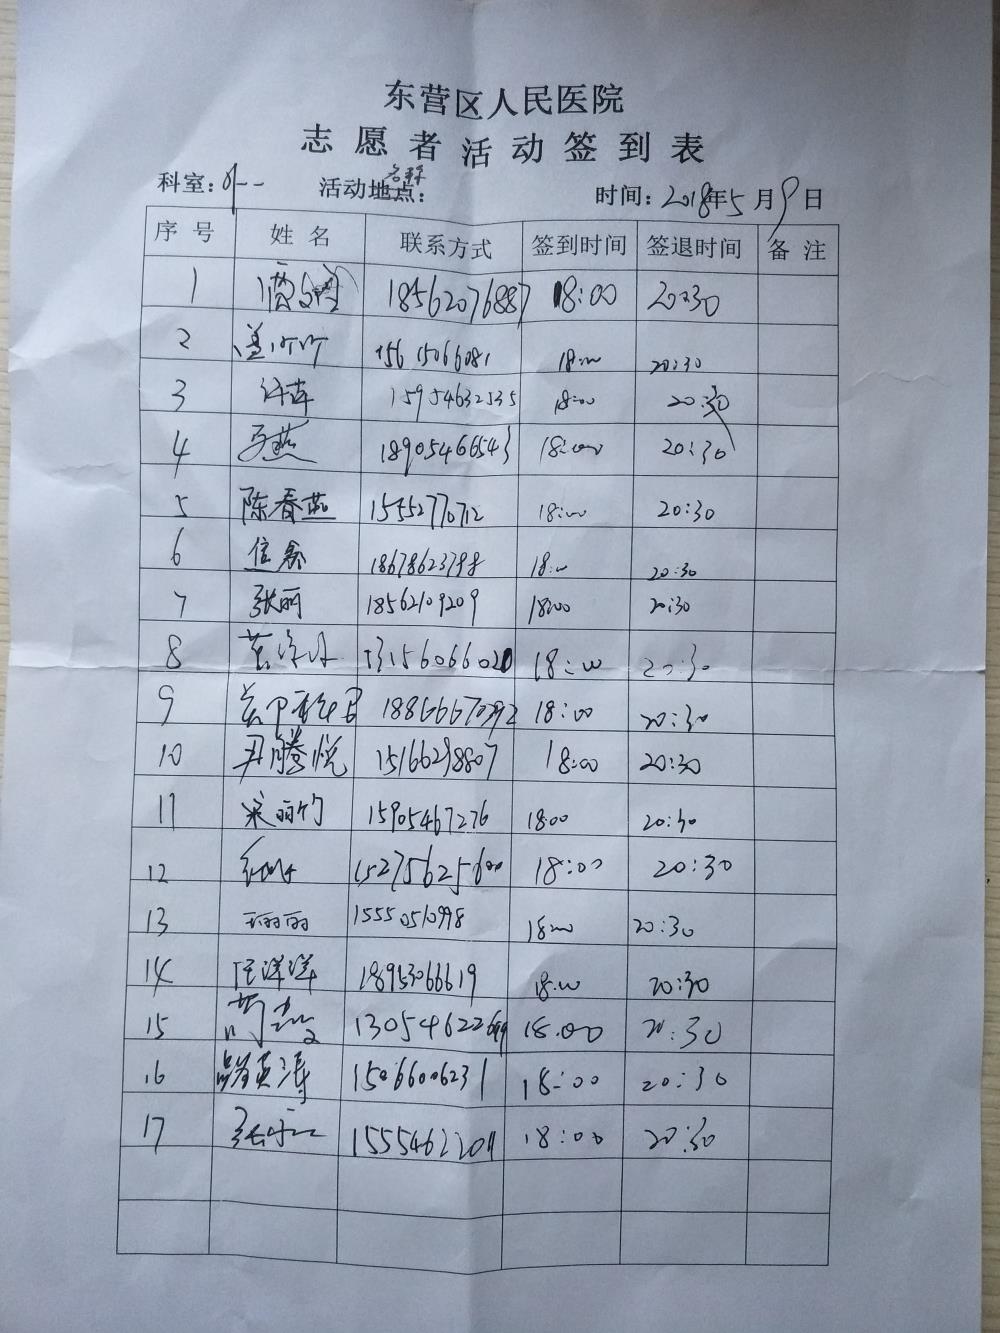 东营区人民医院
志愿者活动签到表
科室: 外一 活动地点: 名称 时间: 2018年5月9日
序号 姓名 联系方式 签到时间 签退时间 备注
1 18562076887 18:00 20:30
2 盖竹竹 15615066081 18:00 20:30
3 许萍 15954632535 18:00 20:30
4 马燕 18905466543 18:00 20:30
5 陈春燕 15552770712 18:00 20:30
6 信鑫 18678623798 18:00 20:30
7 张丽 18562109209 18:00 20:30
8 13156066020 18:00 20:30
9 18:00 20:30
10 尹腾悦 15166298807 18:00 20:30
11 宋丽竹 15905467276 18:00 20:30
12 15275625600 18:00 20:30
13 王丽丽 15550510998 18:00 20:30
14 任洋洋 18953066619 18:00 20:30
15 18:00 20:30
16 路英涛 15066006231 18:00 20:30
17 15554622011 18:00 20:30